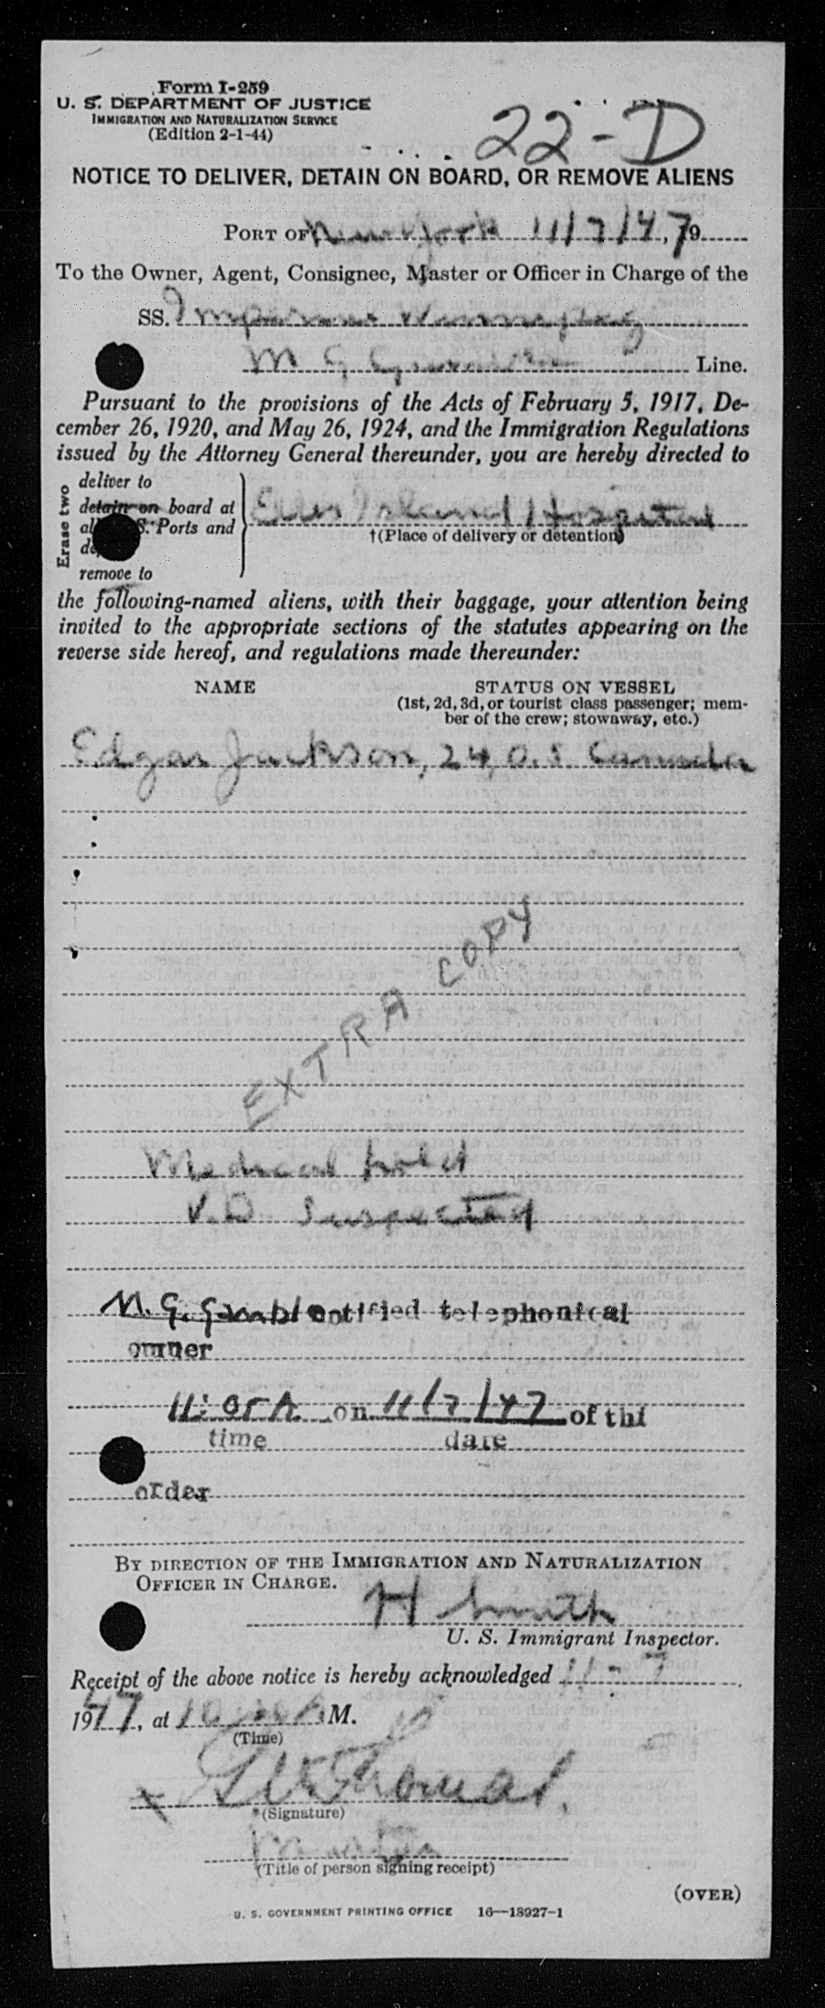 Form I-259
U. S. DEPARTMENT OF JUSTICE
IMMIGRATION AND NATURALIZATION SERVICE
(Edition 2-1-44)
22-D
NOTICE TO DELIVER, DETAIN ON BOARD, OR REMOVE ALIENS
PORT OF New York 11/7/47, 19
To the Owner, Agent, Consignee, Master or Officer in Charge of the
SS. Imperial Winnipeg
M G Line.
Pursuant to the provisions of the Acts of February 5, 1917, De-
cember 26, 1920, and May 26, 1924, and the Immigration Regulations
issued by the Attorney General thereunder, you are hereby directed to
Erase two
deliver to
detain on board at
S. Ports and
remove to
Ellis Island Hospital
†(Place of delivery or detention)
the following-named aliens, with their baggage, your attention being
invited to the appropriate sections of the statutes appearing on the
reverse side hereof, and regulations made thereunder:
NAME STATUS ON VESSEL
(1st, 2d, 3d, or tourist class passenger; mem-
ber of the crew; stowaway, etc.)
Edgar Jackson, 24, O.S. Canada
EXTRA COPY
Medical hold
V.D. Suspected
M. G. Gamble notified telephonical
owner
11:05 A. on 11/7/47 of thi
time date
order
BY DIRECTION OF THE IMMIGRATION AND NATURALIZATION
OFFICER IN CHARGE.
H Smith
U. S. Immigrant Inspector.
Receipt of the above notice is hereby acknowledged 11-7
1947, at 10 M.
(Time)
x Thomas.
*(Signature)
(Title of person signing receipt)
(OVER)
U. S. GOVERNMENT PRINTING OFFICE 16—18927-1